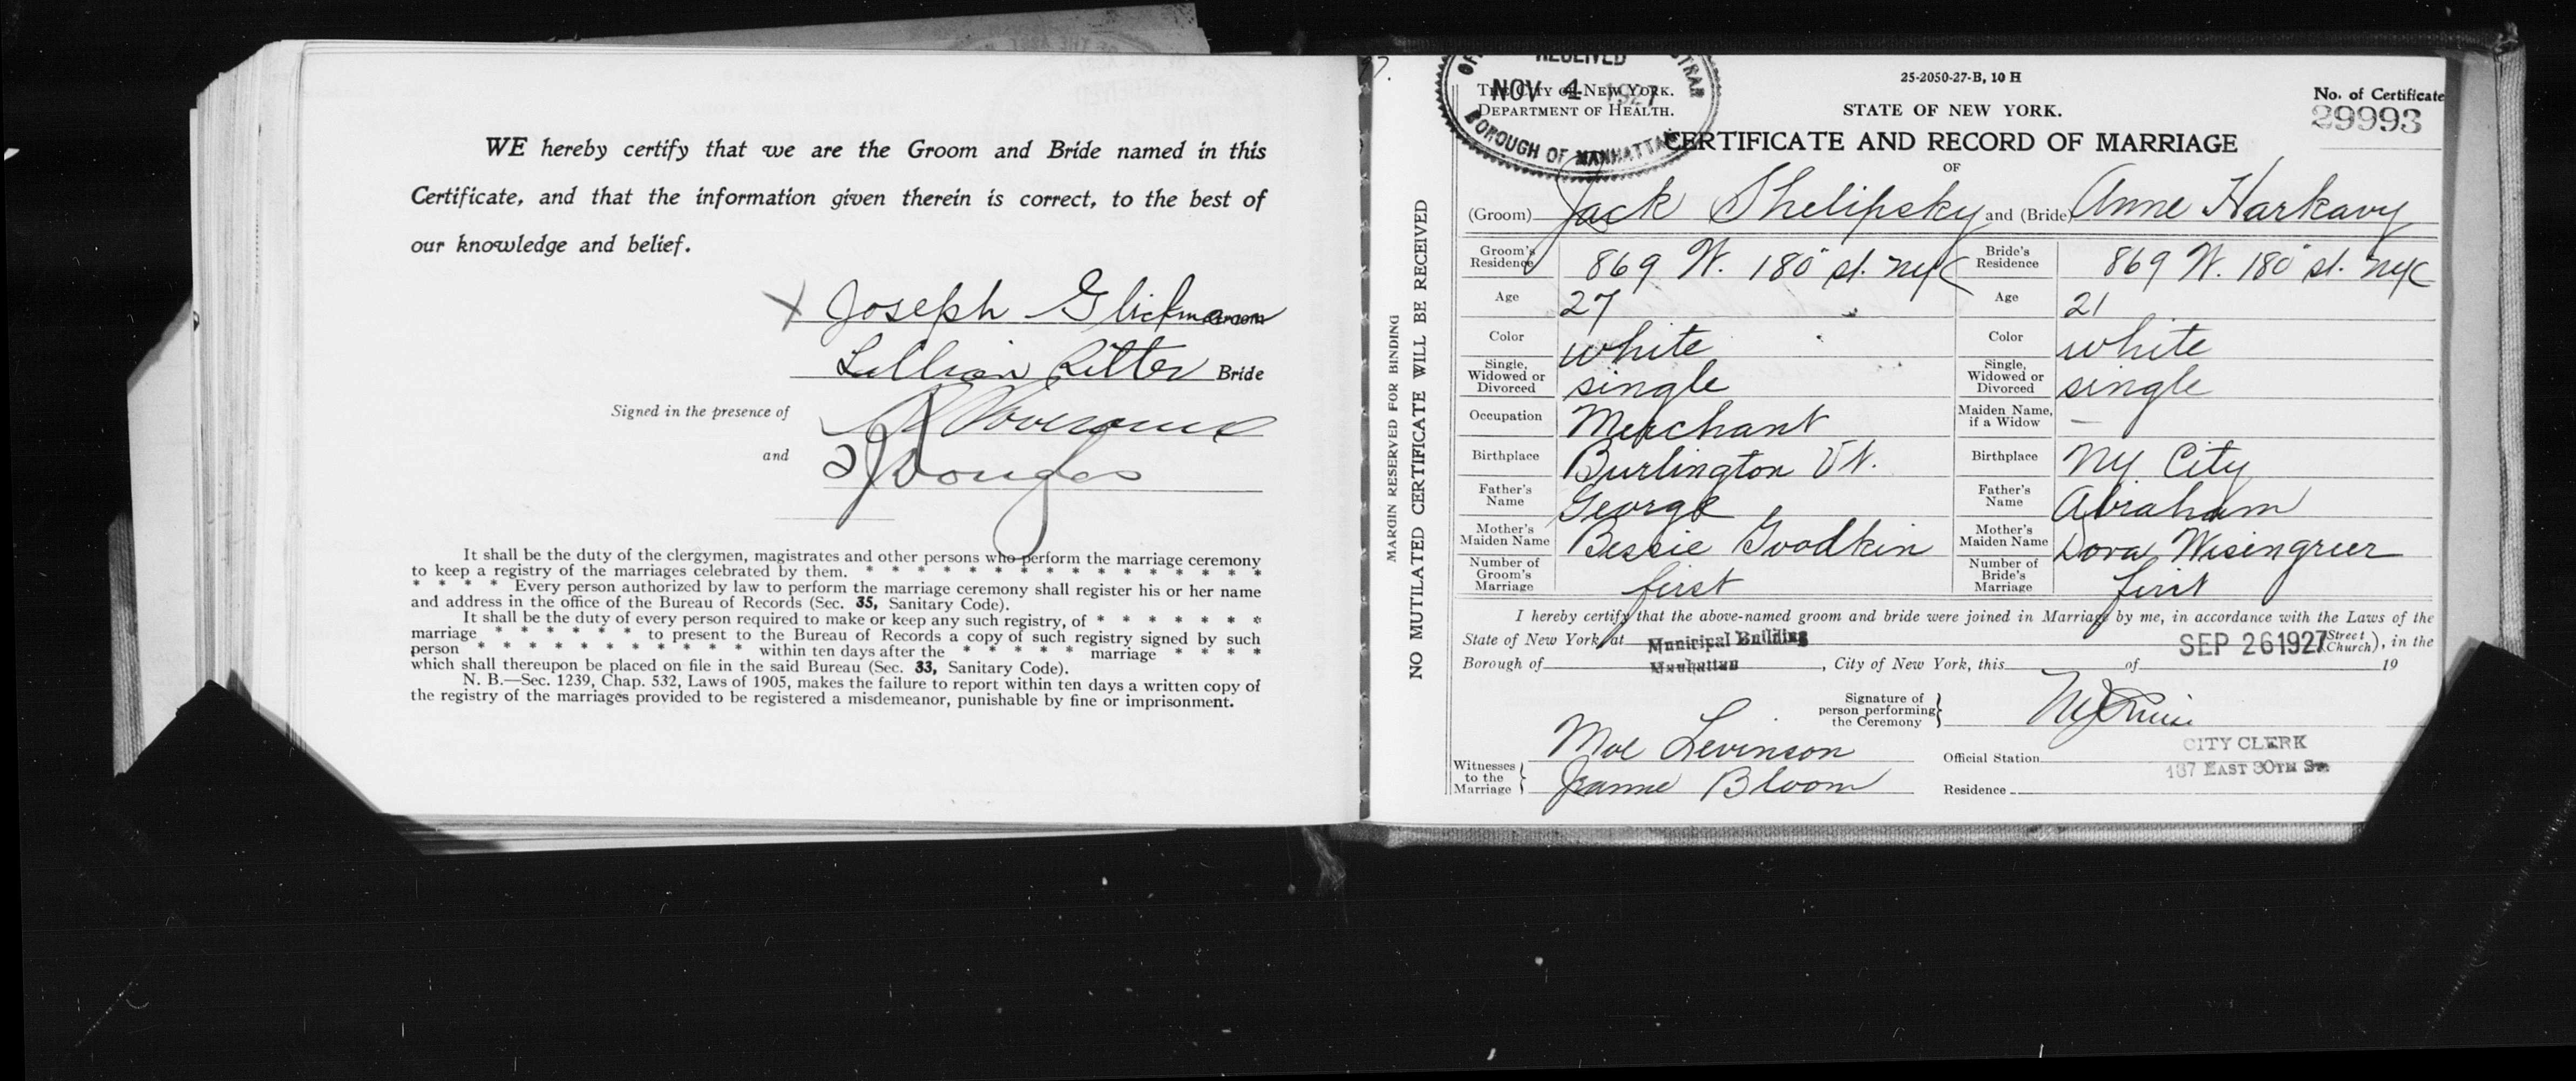 WE hereby certify that we are the Groom and Bride named in this
Certificate, and that the information given therein is correct, to the best of
our knowledge and belief.
X Joseph Glickman Groom
Lillian Ritter Bride
Signed in the presence of
and
It shall be the duty of the clergymen, magistrates and other persons who perform the marriage ceremony
to keep a registry of the marriages celebrated by them. * * * * * * * * * * * * * * *
* * * * Every person authorized by law to perform the marriage ceremony shall register his or her name
and address in the office of the Bureau of Records (Sec. 35, Sanitary Code).
It shall be the duty of every person required to make or keep any such registry, of * * * * * * *
marriage * * * * * * to present to the Bureau of Records a copy of such registry signed by such
person * * * * * * * * * * * within ten days after the * * * * * marriage * * * *
which shall thereupon be placed on file in the said Bureau (Sec. 33, Sanitary Code).
N. B.—Sec. 1239, Chap. 532, Laws of 1905, makes the failure to report within ten days a written copy of
the registry of the marriages provided to be registered a misdemeanor, punishable by fine or imprisonment.
MARGIN RESERVED FOR BINDING
NO MUTILATED CERTIFICATE WILL BE RECEIVED
RECEIVED
NOV 4 1927
BOROUGH OF MANHATTAN
THE CITY OF NEW YORK.
DEPARTMENT OF HEALTH.
25-2050-27-B, 10 H
STATE OF NEW YORK.
No. of Certificate
29993
CERTIFICATE AND RECORD OF MARRIAGE
OF
(Groom) Jack Shelipsky and (Bride) Anne Harkavy
Groom's Residence 869 W. 180 st. NYC Bride's Residence 869 W. 180 st. NYC
Age 27 Age 21
Color white Color white
Single, Widowed or Divorced single Single, Widowed or Divorced single
Occupation Merchant Maiden Name, if a Widow —
Birthplace Burlington Vt. Birthplace NY City
Father's Name George Father's Name Abraham
Mother's Maiden Name Bessie Goodkin Mother's Maiden Name Dora Wisengreer
Number of Groom's Marriage first Number of Bride's Marriage first
I hereby certify that the above-named groom and bride were joined in Marriage by me, in accordance with the Laws of the
State of New York, at Municipal Building SEP 26 1927 (Street Church), in the
Borough of Manhattan, City of New York, this of 19
Signature of person performing the Ceremony
Witnesses to the Marriage Moe Levinson
Jeanne Bloom
Official Station CITY CLERK
167 EAST 80TH ST.
Residence